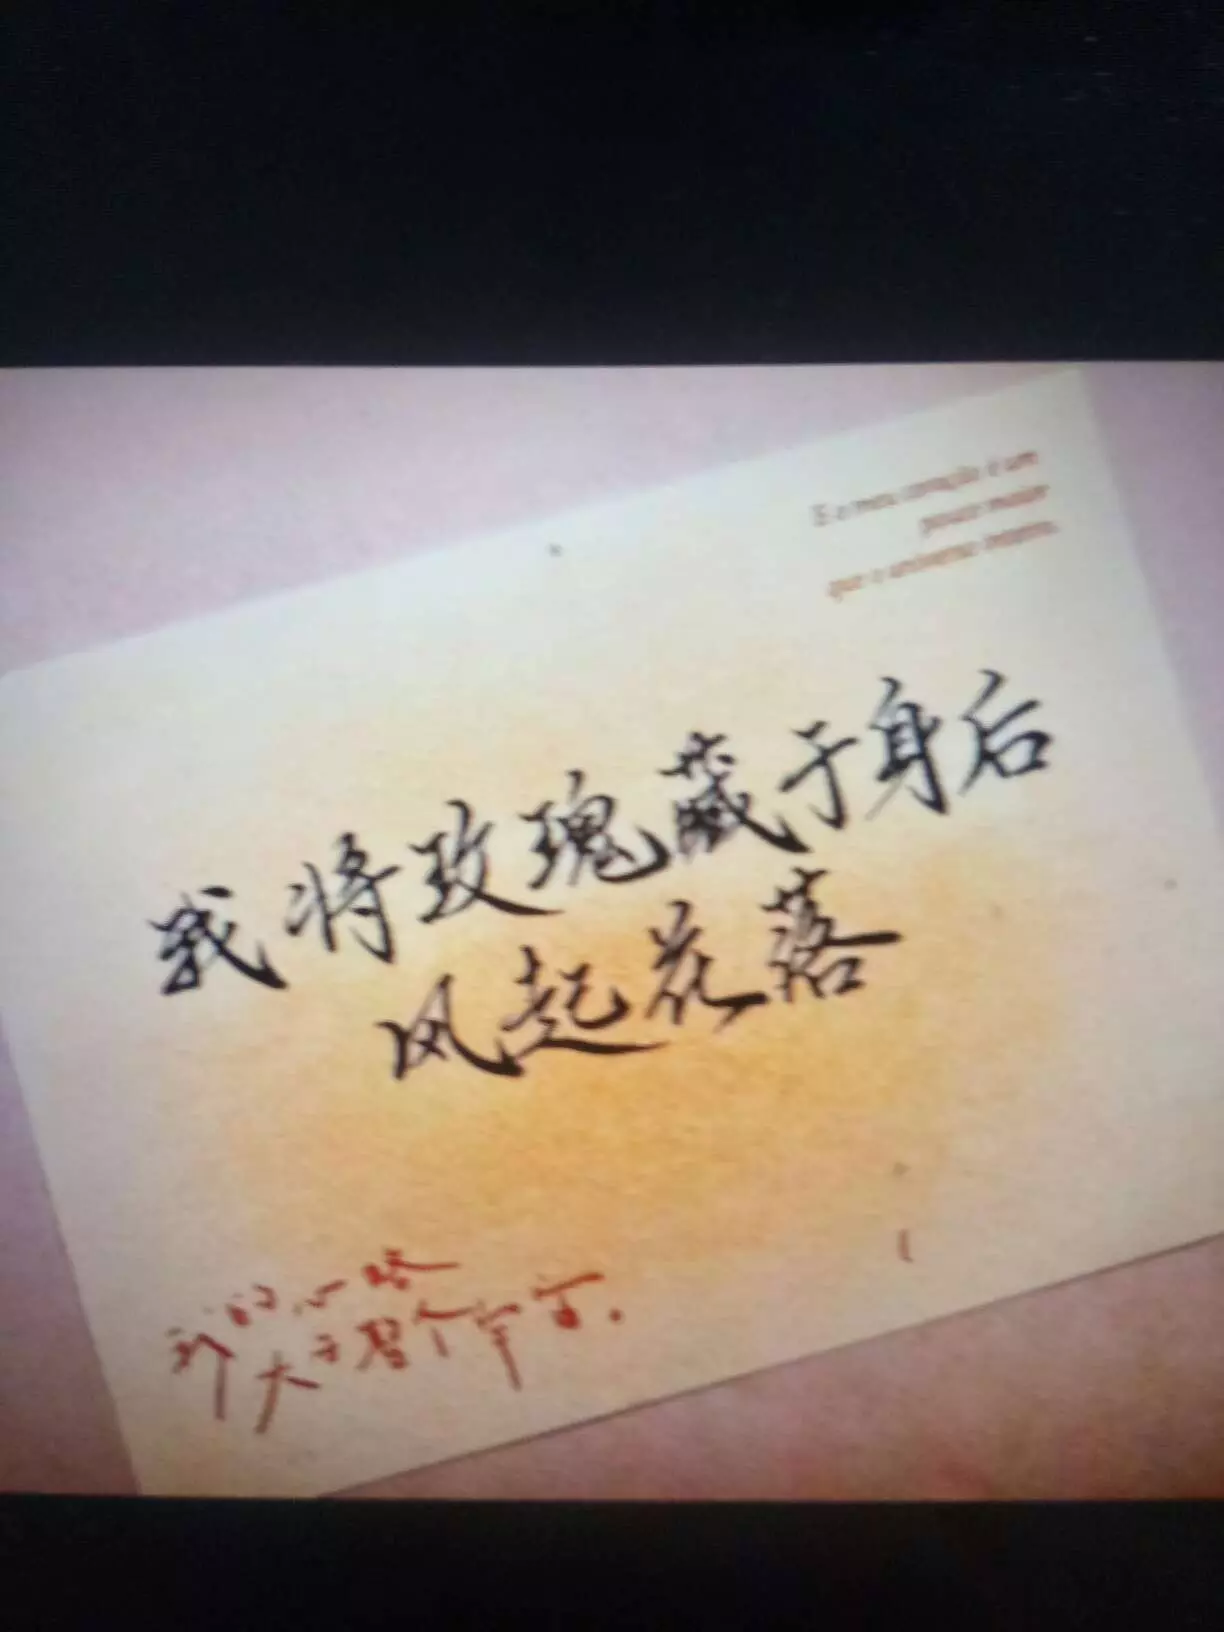 E o meu coração é um
pouco maior
que o universo inteiro.
我将玫瑰藏于身后
风起花落
我的心略
大于整个宇宙.